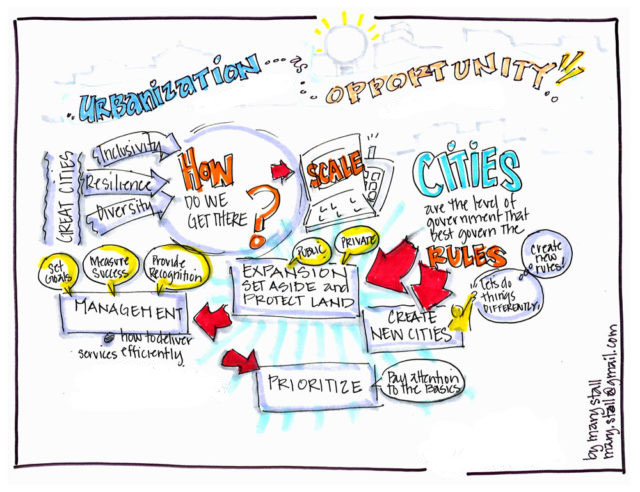 URBANIZATION...as
OPPORTUNITY...
GREAT CITIES
Inclusivity
Resilience
Diversity
HOW
DO WE
GET THERE
?
SCALE
CITIES
are the level of
government that
best govern the
RULES
create
new
rules!
Let's do
things
DIFFERENTLY.
Set
Goals
Measure
Success
Provide
Recognition
MANAGEMENT
how to deliver
services efficiently.
PUBLIC
PRIVATE
EXPANSION
SET ASIDE and
PROTECT LAND
CREATE
NEW CITIES
PRIORITIZE
Pay attention
to the Basics
by mary stall
mary.stall@gmail.com